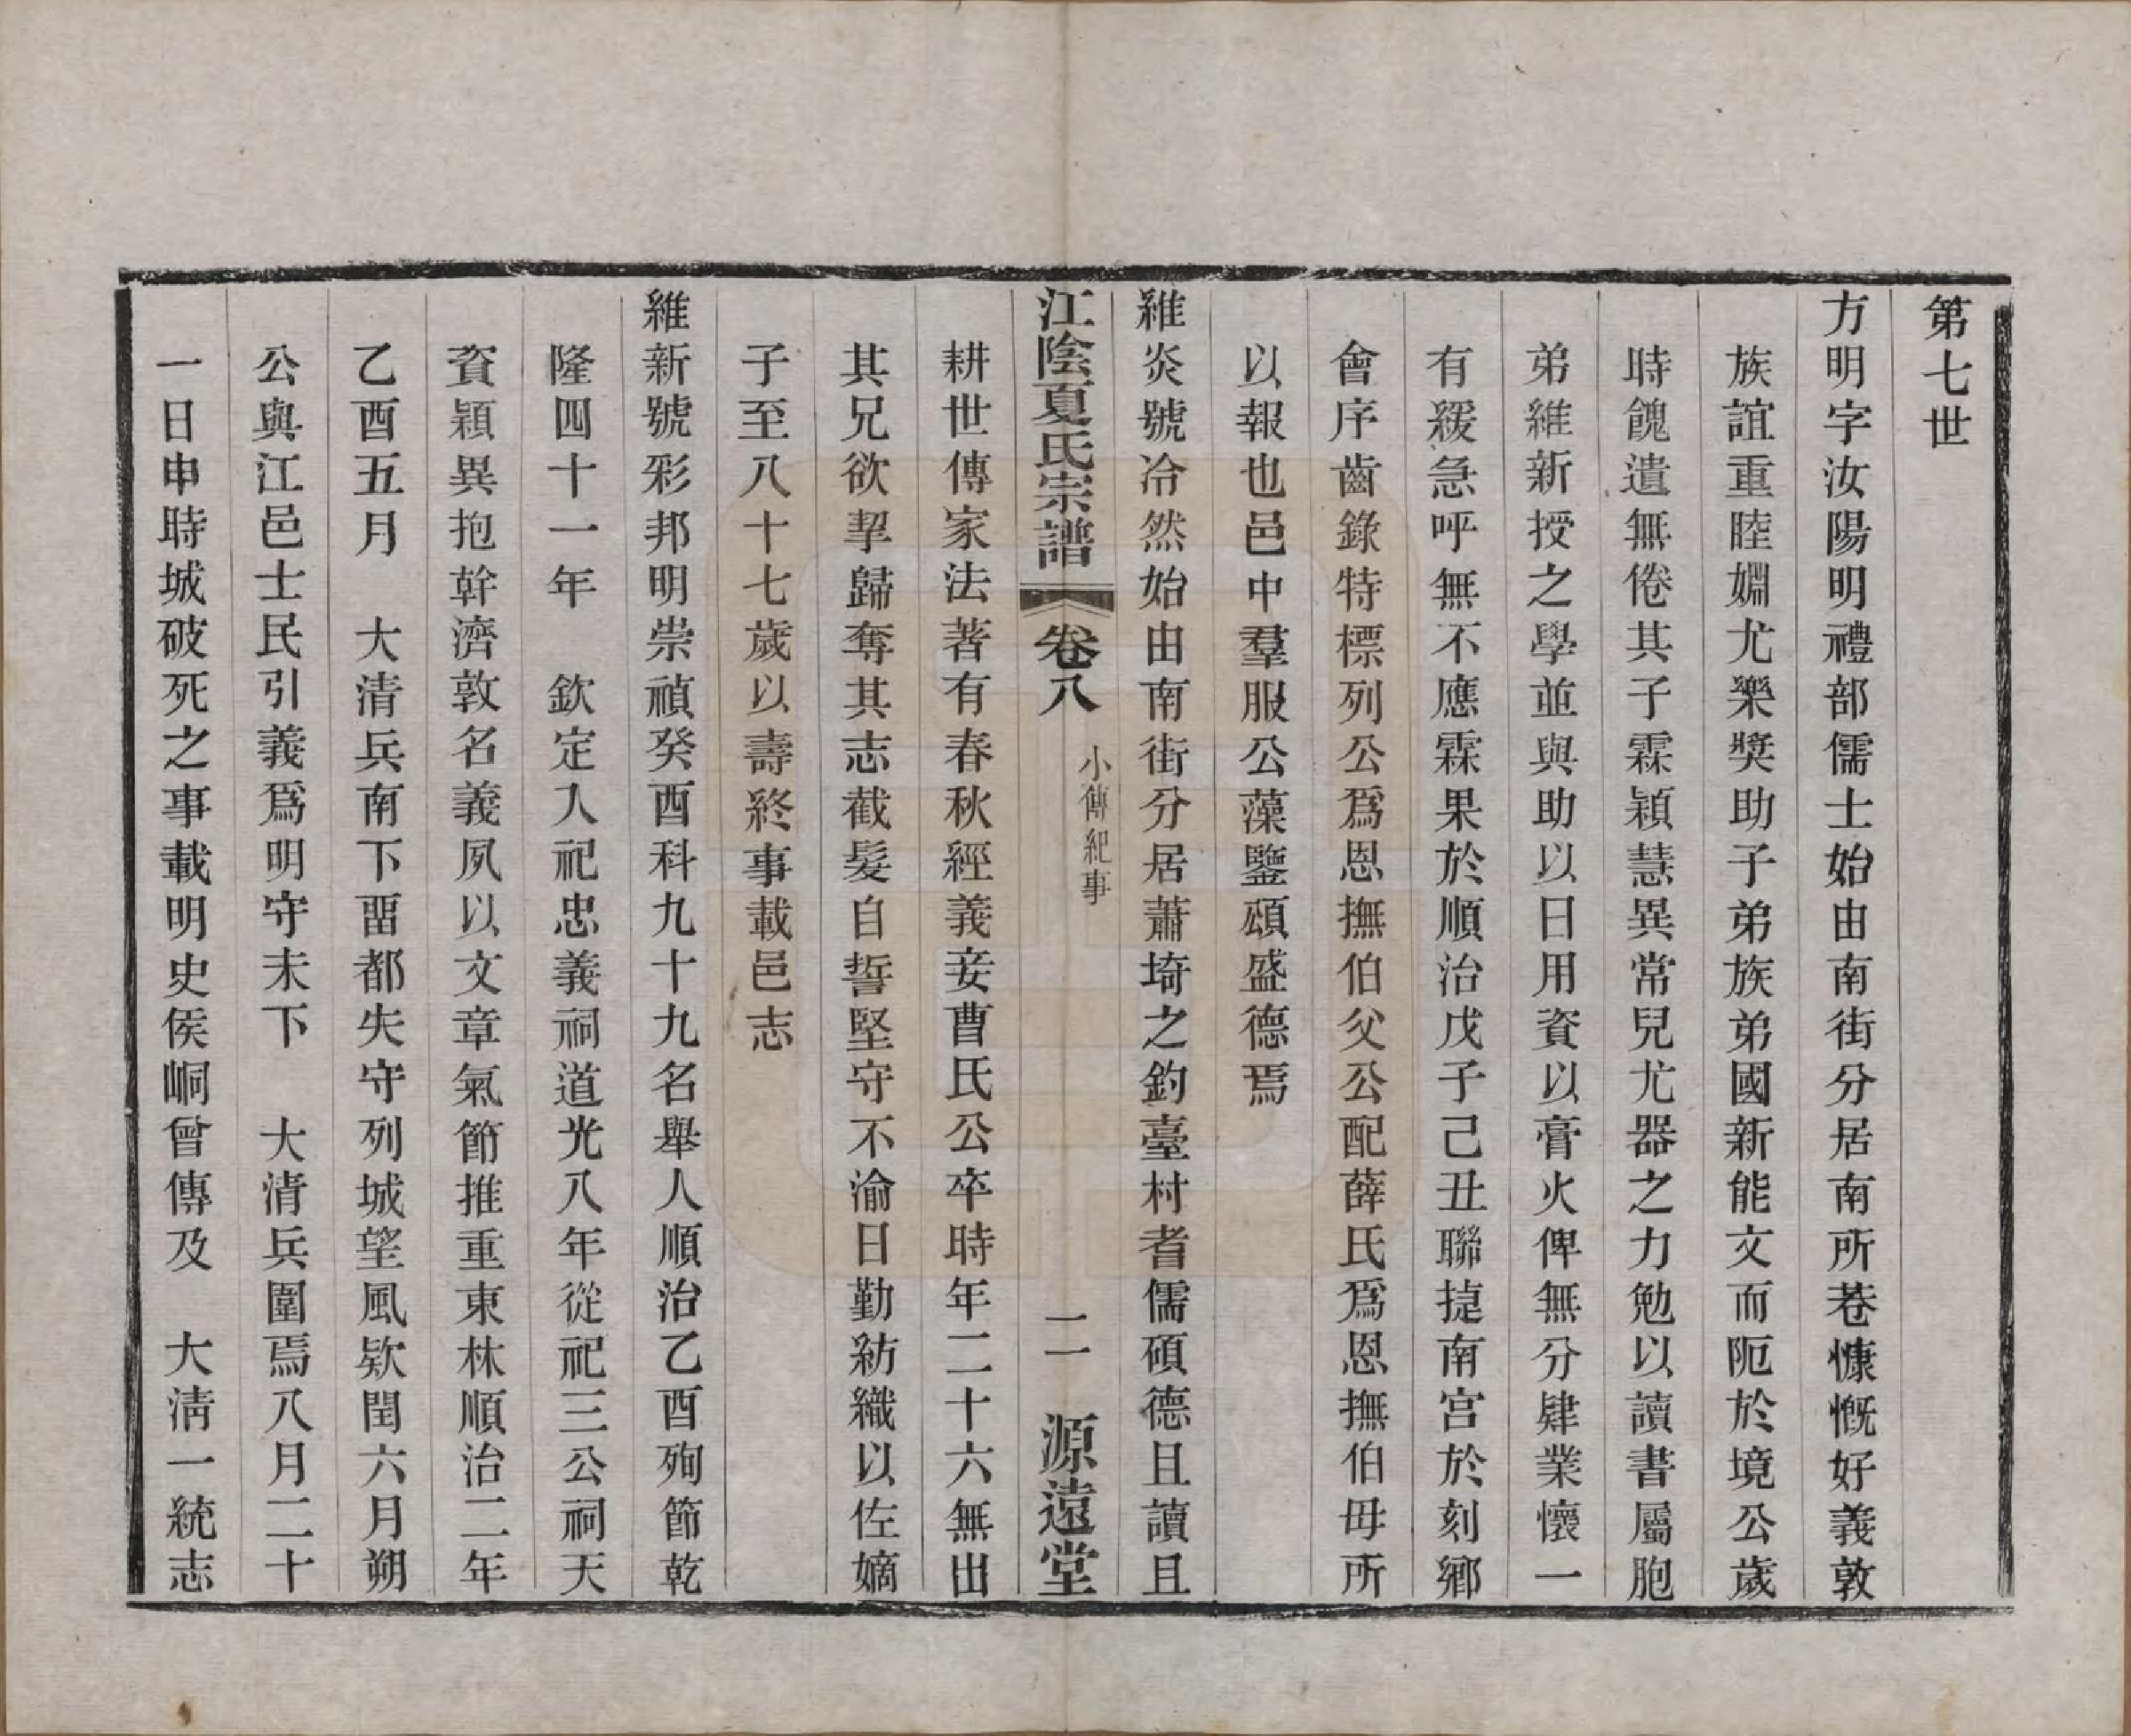 第七世
方明字汝陽明禮部儒士始由南街分居南所巷慷慨好義敦
族誼重睦婣尤樂獎助子弟族弟國新能文而阨於境公歲
時餽遺無倦其子霖穎慧異常兒尤器之力勉以讀書屬胞
弟維新授之學並與助以日用資以膏火俾無分肄業懷一
有緩急呼無不應霖果於順治戊子己丑聯捷南宮於刻鄉
會序齒錄特標列公爲恩撫伯父公配薛氏爲恩撫伯母所
以報也邑中羣服公藻鑒頌盛德焉
維炎號冷然始由南街分居蕭埼之釣臺村耆儒碩德且讀且
江陰夏氏宗譜 卷八 小傳紀事 二 源遠堂
耕世傳家法著有春秋經義妾曹氏公卒時年二十六無出
其兄欲挈歸奪其志截髮自誓堅守不渝日勤紡織以佐嫡
子至八十七歲以壽終事載邑志
維新號彩邦明崇禎癸酉科九十九名舉人順治乙酉殉節乾
隆四十一年 欽定入祀忠義祠道光八年從祀三公祠天
資穎異抱幹濟敦名義夙以文章氣節推重東林順治二年
乙酉五月 大清兵南下畱都失守列城望風欵閏六月朔
公與江邑士民引義爲明守未下 大清兵圍焉八月二十
一日申時城破死之事載明史侯峒曾傳及 大清一統志